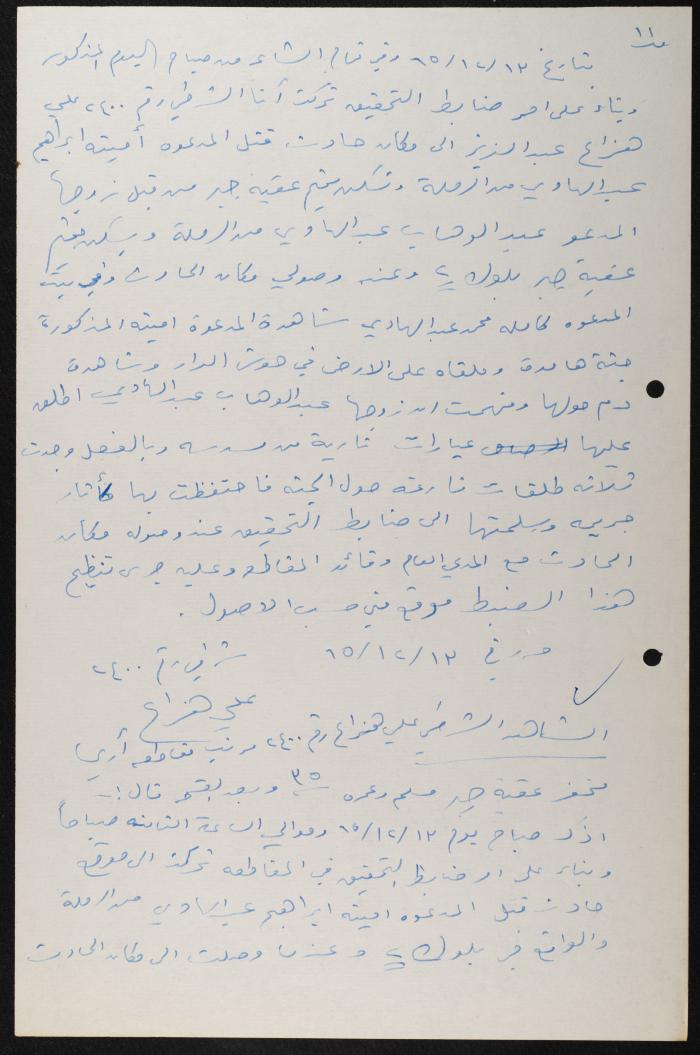 ١١
بتاريخ ١٣/١٢/٦٥ وفي تمام الثامنه من صباح اليوم المذكور
وبناء على امر ضابط التحقيق تحركت أنا الشرطي رقم ٢٤٠٠ علي
هزاع عبد العزيز الى مكان حادث قتل المدعوه أمينه ابراهيم
عبد الهادي من الرملة وتسكن مخيم عقبة جبر من قبل زوجها
المدعو عبد الوهاب عبد الهادي من الرملة ويسكن مخيم
عقبة جبر بلوك وعند وصولي مكان الحادث وفي بيت
المدعوه كامله محمد عبد الهادي شاهدة المدعوة امينه المذكورة
جثة هامدة وملقاه على الارض في حوش الدار وشاهدة
دم حولها وفهمت ان زوجها عبد الوهاب عبد الهادي اطلق
عليها عيارات نارية من مسدسه وبالفعل وجدت
ثلاثه طلقات فارغه حول الجثه فاحتفظت بها كأثار
جريمه وسلمتها الى ضابط التحقيق عند وصوله مكان
الحادث مع المدعي العام وقائد المقاطعه وعليه جرى تنظيم
هذا الضبط موقع مني حسب الاصول .
حرر في ١٣/١٢/٦٥ شرطي رقم ٢٤٠٠
علي هزاع
الشاهد الشرطي علي هزاع رقم ٢٤٠٠ مرتب مقاطعه أريحا
مخفر عقبة جبر مسلم وعمره ٣٥ وبعد القسم قال :-
اذكر صباح يوم ١٣/١٢/٦٥ وحوالي الساعة الثامنه صباحاً
وبناء على امر ضابط التحقيق في المقاطعه تحركت الى موقع
حادث قتل المدعوه امينه ابراهيم عبد الهادي من الرملة
والواقع في بلوك وعندما وصلت الى مكان الحادث